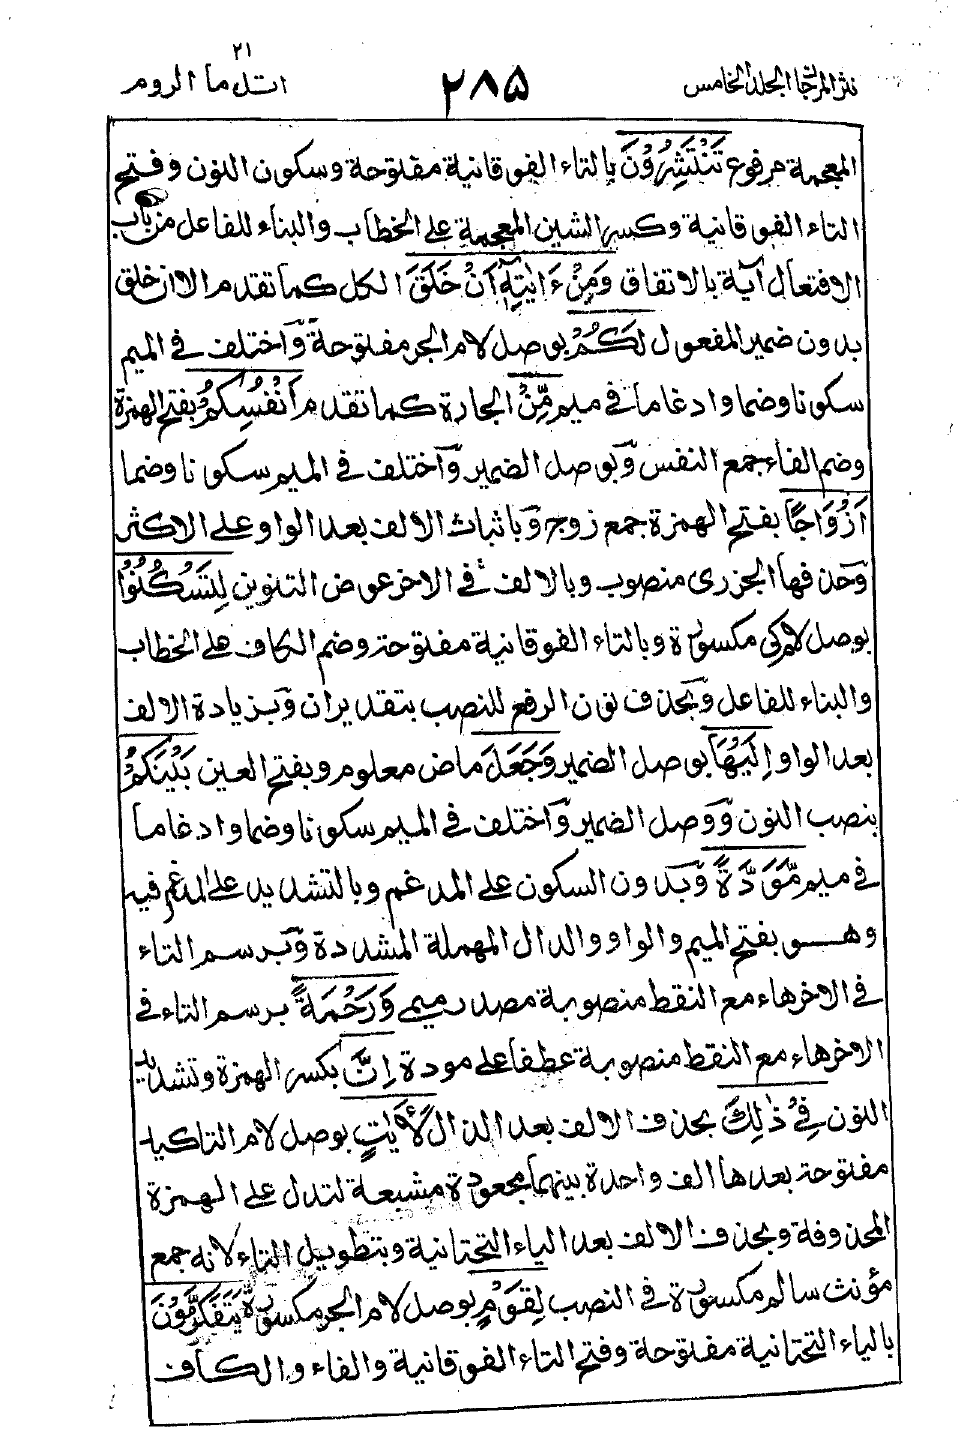 نثر المرجان الجلد الخامس
٢٨٥
٢١
اتل ما الروم
المعجمة مرفوع تَنْتَشِرُوْنَ بالتاء الفوقانية مفتوحة وسكون النون وفتح
التاء الفوقانية وكسر الشين المعجمة على الخطاب والبناء للفاعل من باب
الافتعال آية بالاتفاق وَمِنْ ءَايٰتِهٖٓ اَنْ خَلَقَ الكل كما تقدم الا ان خلق
بدون ضمير المفعول لَكُمْ بوصل لام الجر مفتوحة وَاختلف في الميم
سكونا وضما وادغاما في ميم مِّنْ الجارة كما تقدم اَنْفُسِكُمْ بفتح الهمزة
وضم الفاء جمع النفس وَبوصل الضمير وَاختلف في الميم سكونا وضما
اَزْوَاجًا بفتح الهمزة جمع زوج وَباثبات الالف بعد الواو على الاكثر
وَحذفها الجزرى منصوب وبالالف في الاخر عوض التنوين لِتَسْكُنُوْا
بوصل لام كى مكسورة وبالتاء الفوقانية مفتوحة وضم الكاف على الخطاب
والبناء للفاعل وَبحذف نون الرفع للنصب بتقدير ان وَبزيادة الالف
بعد الواو اِلَيْهَا بوصل الضمير وَجَعَلَ ماض معلوم وبفتح العين بَيْنَكُمْ
بنصب النون وَوَصل الضمير وَاختلف في الميم سكونا وضما وادغاما
في ميم مَّوَدَّةً وَبدون السكون على المدغم وبالتشديد على المدغم فيه
وهو بفتح الميم والواو والدال المهملة المشددة وَبرسم التاء
في الاخر هاء مع النقط منصوبة مصدر ميمى وَرَحْمَةً برسم التاء في
الاخر هاء مع النقط منصوبة عطفا على مودة اِنَّ بكسر الهمزة وتشديد
النون فِيْ ذٰلِكَ بحذف الالف بعد الذال لَاٰيٰتٍ بوصل لام التاكيد
مفتوحة بعدها الف واحدة بينهما مجعودة مشبعة لتدل على الهمزة
المحذوفة وبحذف الالف بعد الياء التحتانية وبتطويل التاء لانه جمع
مؤنث سالم مكسورة في النصب لِقَوْمٍ بوصل لام الجر مكسورة يَتَفَكَّرُوْنَ
بالياء التحتانية مفتوحة وفتح التاء الفوقانية والفاء والكاف